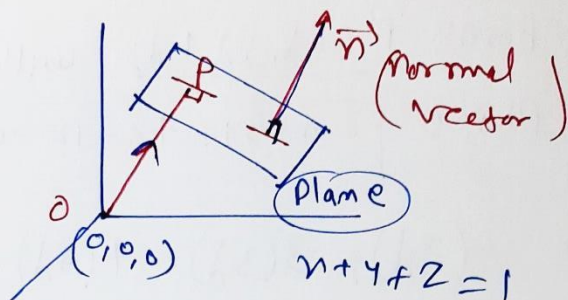 P
n
(normal
vector)
n
Plane
O
(0,0,0)
x+y+z=1